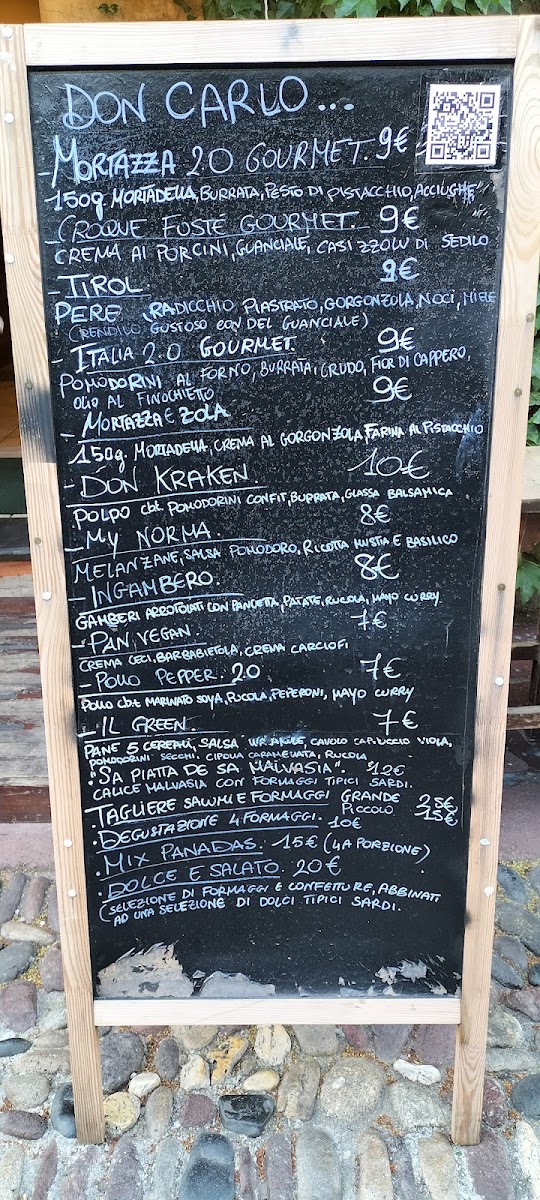 DON CARLO...
- MORTAZZA 2.0 GOURMET. 9€
150g. MORTADELLA, BURRATA, PESTO DI PISTACCHIO, ACCIUGHE
- CROQUE FUSTÉ GOURMET. 9€
CREMA AI PORCINI, GUANCIALE, CASIZZOLU DI SEDILO
- TIROL. 9€
PERE RADICCHIO PIASTRATO, GORGONZOLA, NOCI, MIELE
(RENDILO GUSTOSO CON DEL GUANCIALE)
- ITALIA 2.0 GOURMET. 9€
POMODORINI AL FORNO, BURRATA, CRUDO, FIOR DI CAPPERO,
OLIO AL FINOCHIETTO
- MORTAZZA E ZOLA 9€
150g. MORTADELLA, CREMA AL GORGONZOLA, FARINA AL PISTACCHIO
- DON KRAKEN 10€
POLPO cbt. POMODORINI CONFIT, BURRATA, GLASSA BALSAMICA
- MY NORMA. 8€
MELANZANE, SALSA POMODORO, RICOTTA MUSTIA E BASILICO
- INGAMBERO. 8€
GAMBERI ARROTOLATI CON PANCETTA, PATATE, RUCOLA, MAYO CURRY
- PAN VEGAN 7€
CREMA CECI, BARBABIETOLA, CREMA CARCIOFI
- POLLO PEPPER 2.0 7€
POLLO cbt MARINATO SOYA, RUCOLA, PEPERONI, MAYO CURRY
- IL GREEN. 7€
PANE 5 CEREALI, SALSA CAVOLO CAPPUCCIO VIOLA,
POMODORINI SECCHI, CIPOLLA CARAMELLATA, RUCOLA
• "SA PIATTA DE SA MALVASIA". 12€
CALICE MALVASIA CON FORMAGGI TIPICI SARDI.
• TAGLIERE SALUMI E FORMAGGI GRANDE 25€
PICCOLO 15€
• DEGUSTAZIONE 4 FORMAGGI. 10€
• MIX PANADAS. 15€ (4 A PORZIONE)
• DOLCE E SALATO. 20€
(SELEZIONE DI FORMAGGI E CONFETTURE, ABBINATI
AD UNA SELEZIONE DI DOLCI TIPICI SARDI.